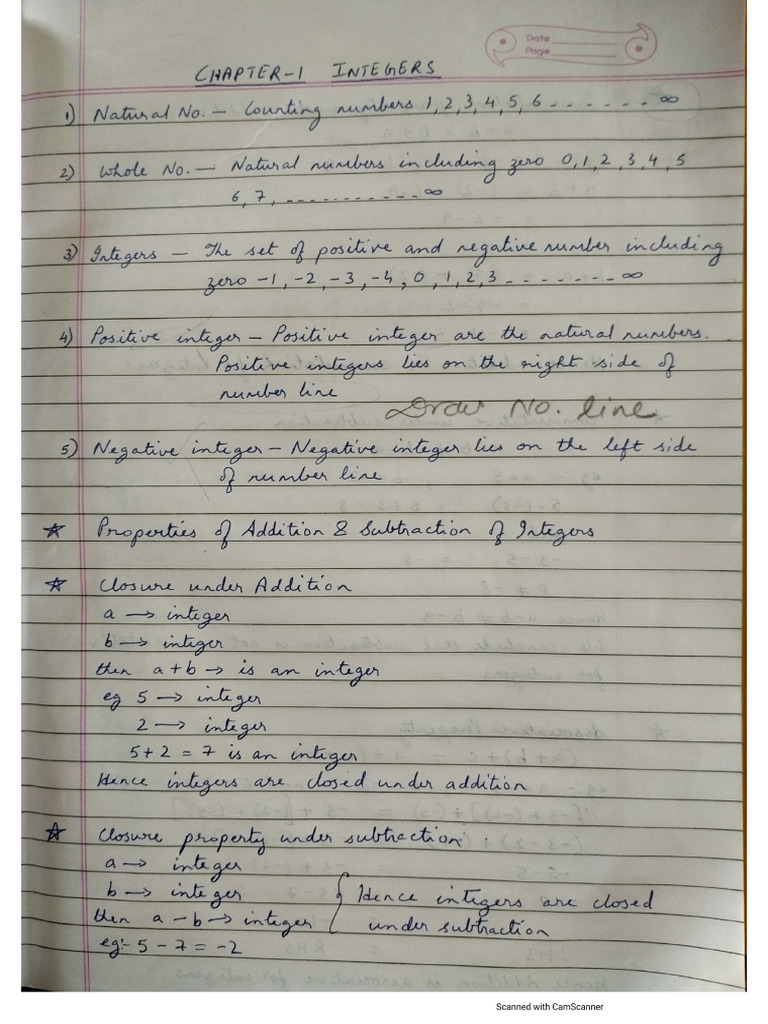 Date
Page
CHAPTER-1 INTEGERS
1) Natural No. - Counting numbers 1,2,3,4,5,6 ------- ∞
2) Whole No. - Natural numbers including zero 0,1,2,3,4,5
6,7, ----------- ∞
3) Integers - The set of positive and negative number including
zero -1,-2,-3,-4,0,1,2,3 -------- ∞
4) Positive integer - Positive integer are the natural numbers.
Positive integers lies on the right side of
number line
Draw No. line
5) Negative integer - Negative integer lies on the left side
of number line
☆ Properties of Addition & Subtraction of Integers
☆ Closure under Addition
a → integer
b → integer
then a+b → is an integer
eg 5 → integer
2 → integer
5+2 = 7 is an integer
Hence integers are closed under addition
☆ Closure property under subtraction.
a → integer
b → integer { Hence integers are closed
then a-b → integer under subtraction
eg:- 5-7 = -2
Scanned with CamScanner